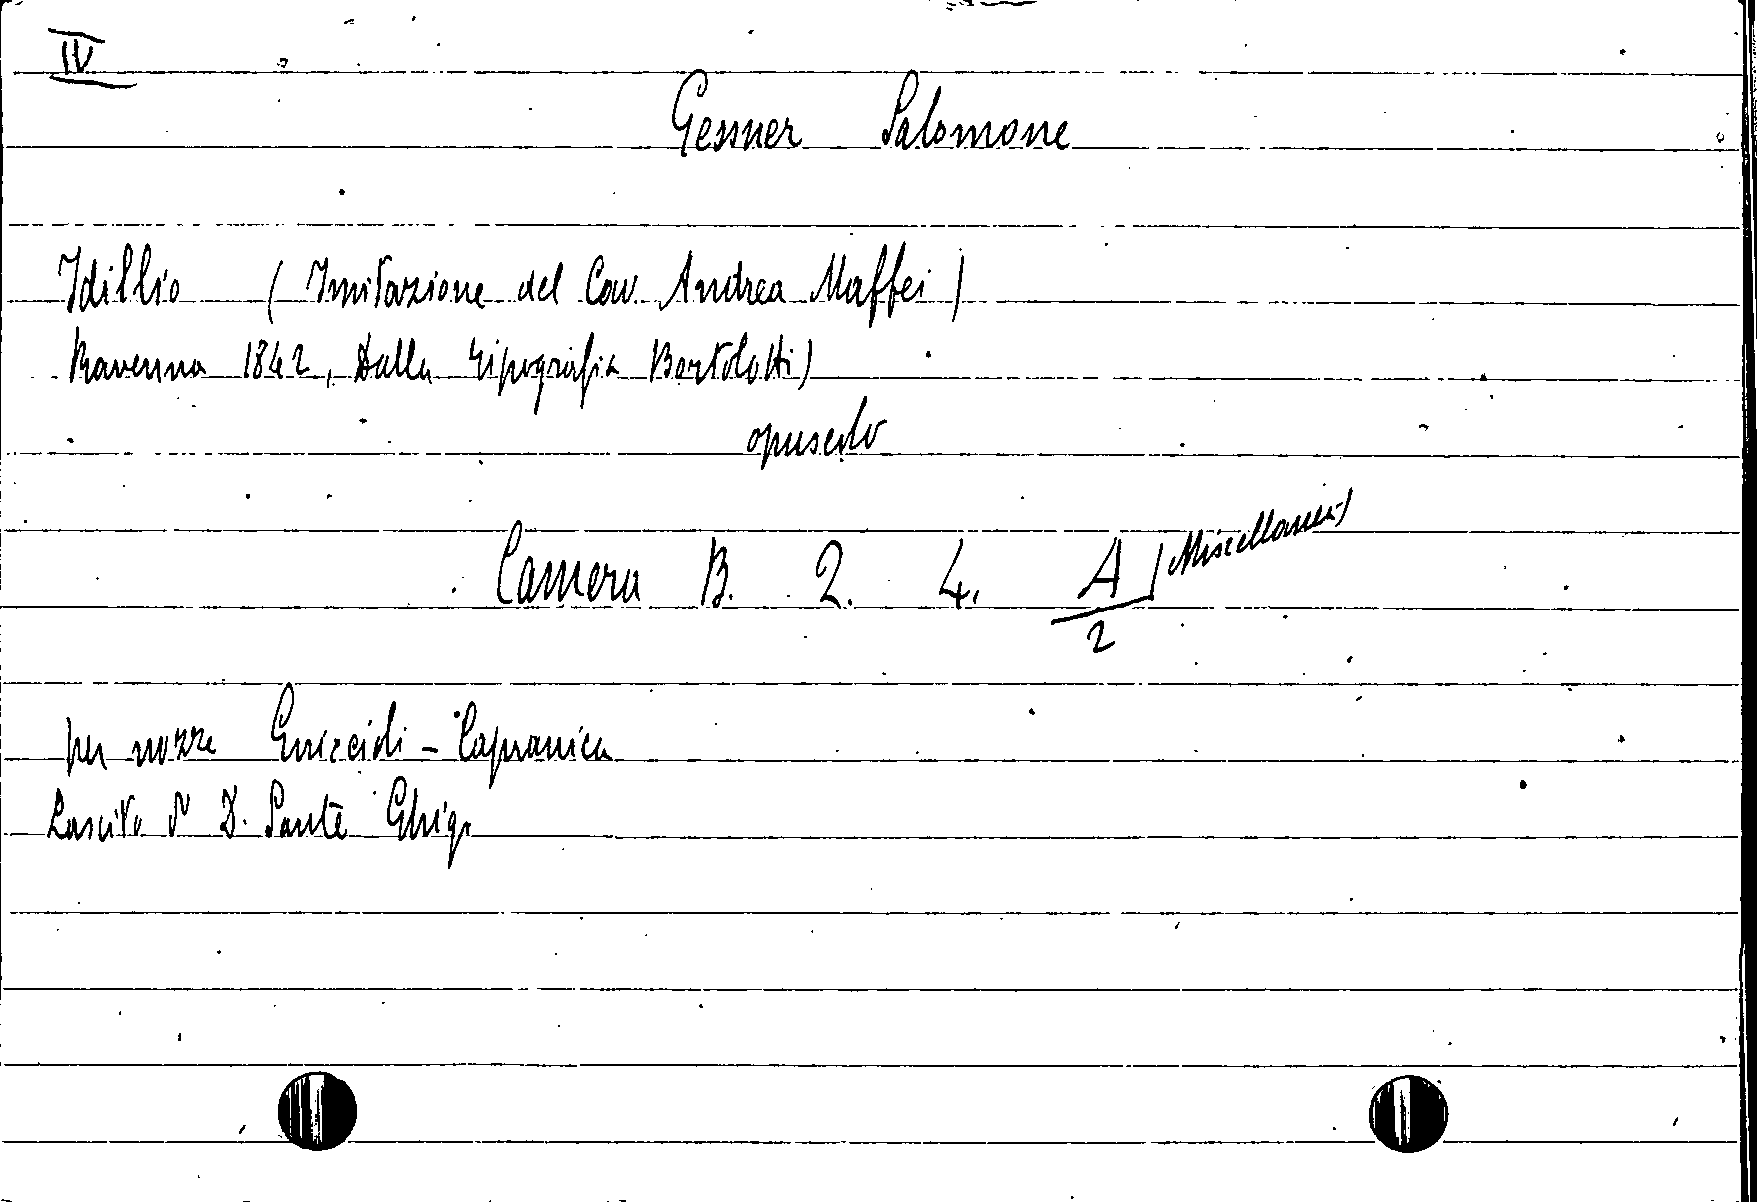 IV
Gessner Salomone
Idillio (Imitazione del Cav. Andrea Maffei)
Ravenna 1842, Dalla Tipografia Bortolotti)
opuscolo
Camera B. 2. 4. A/2 (Miscellanea)
per nozze - Capranica
Lascito D. Sante Ghigi